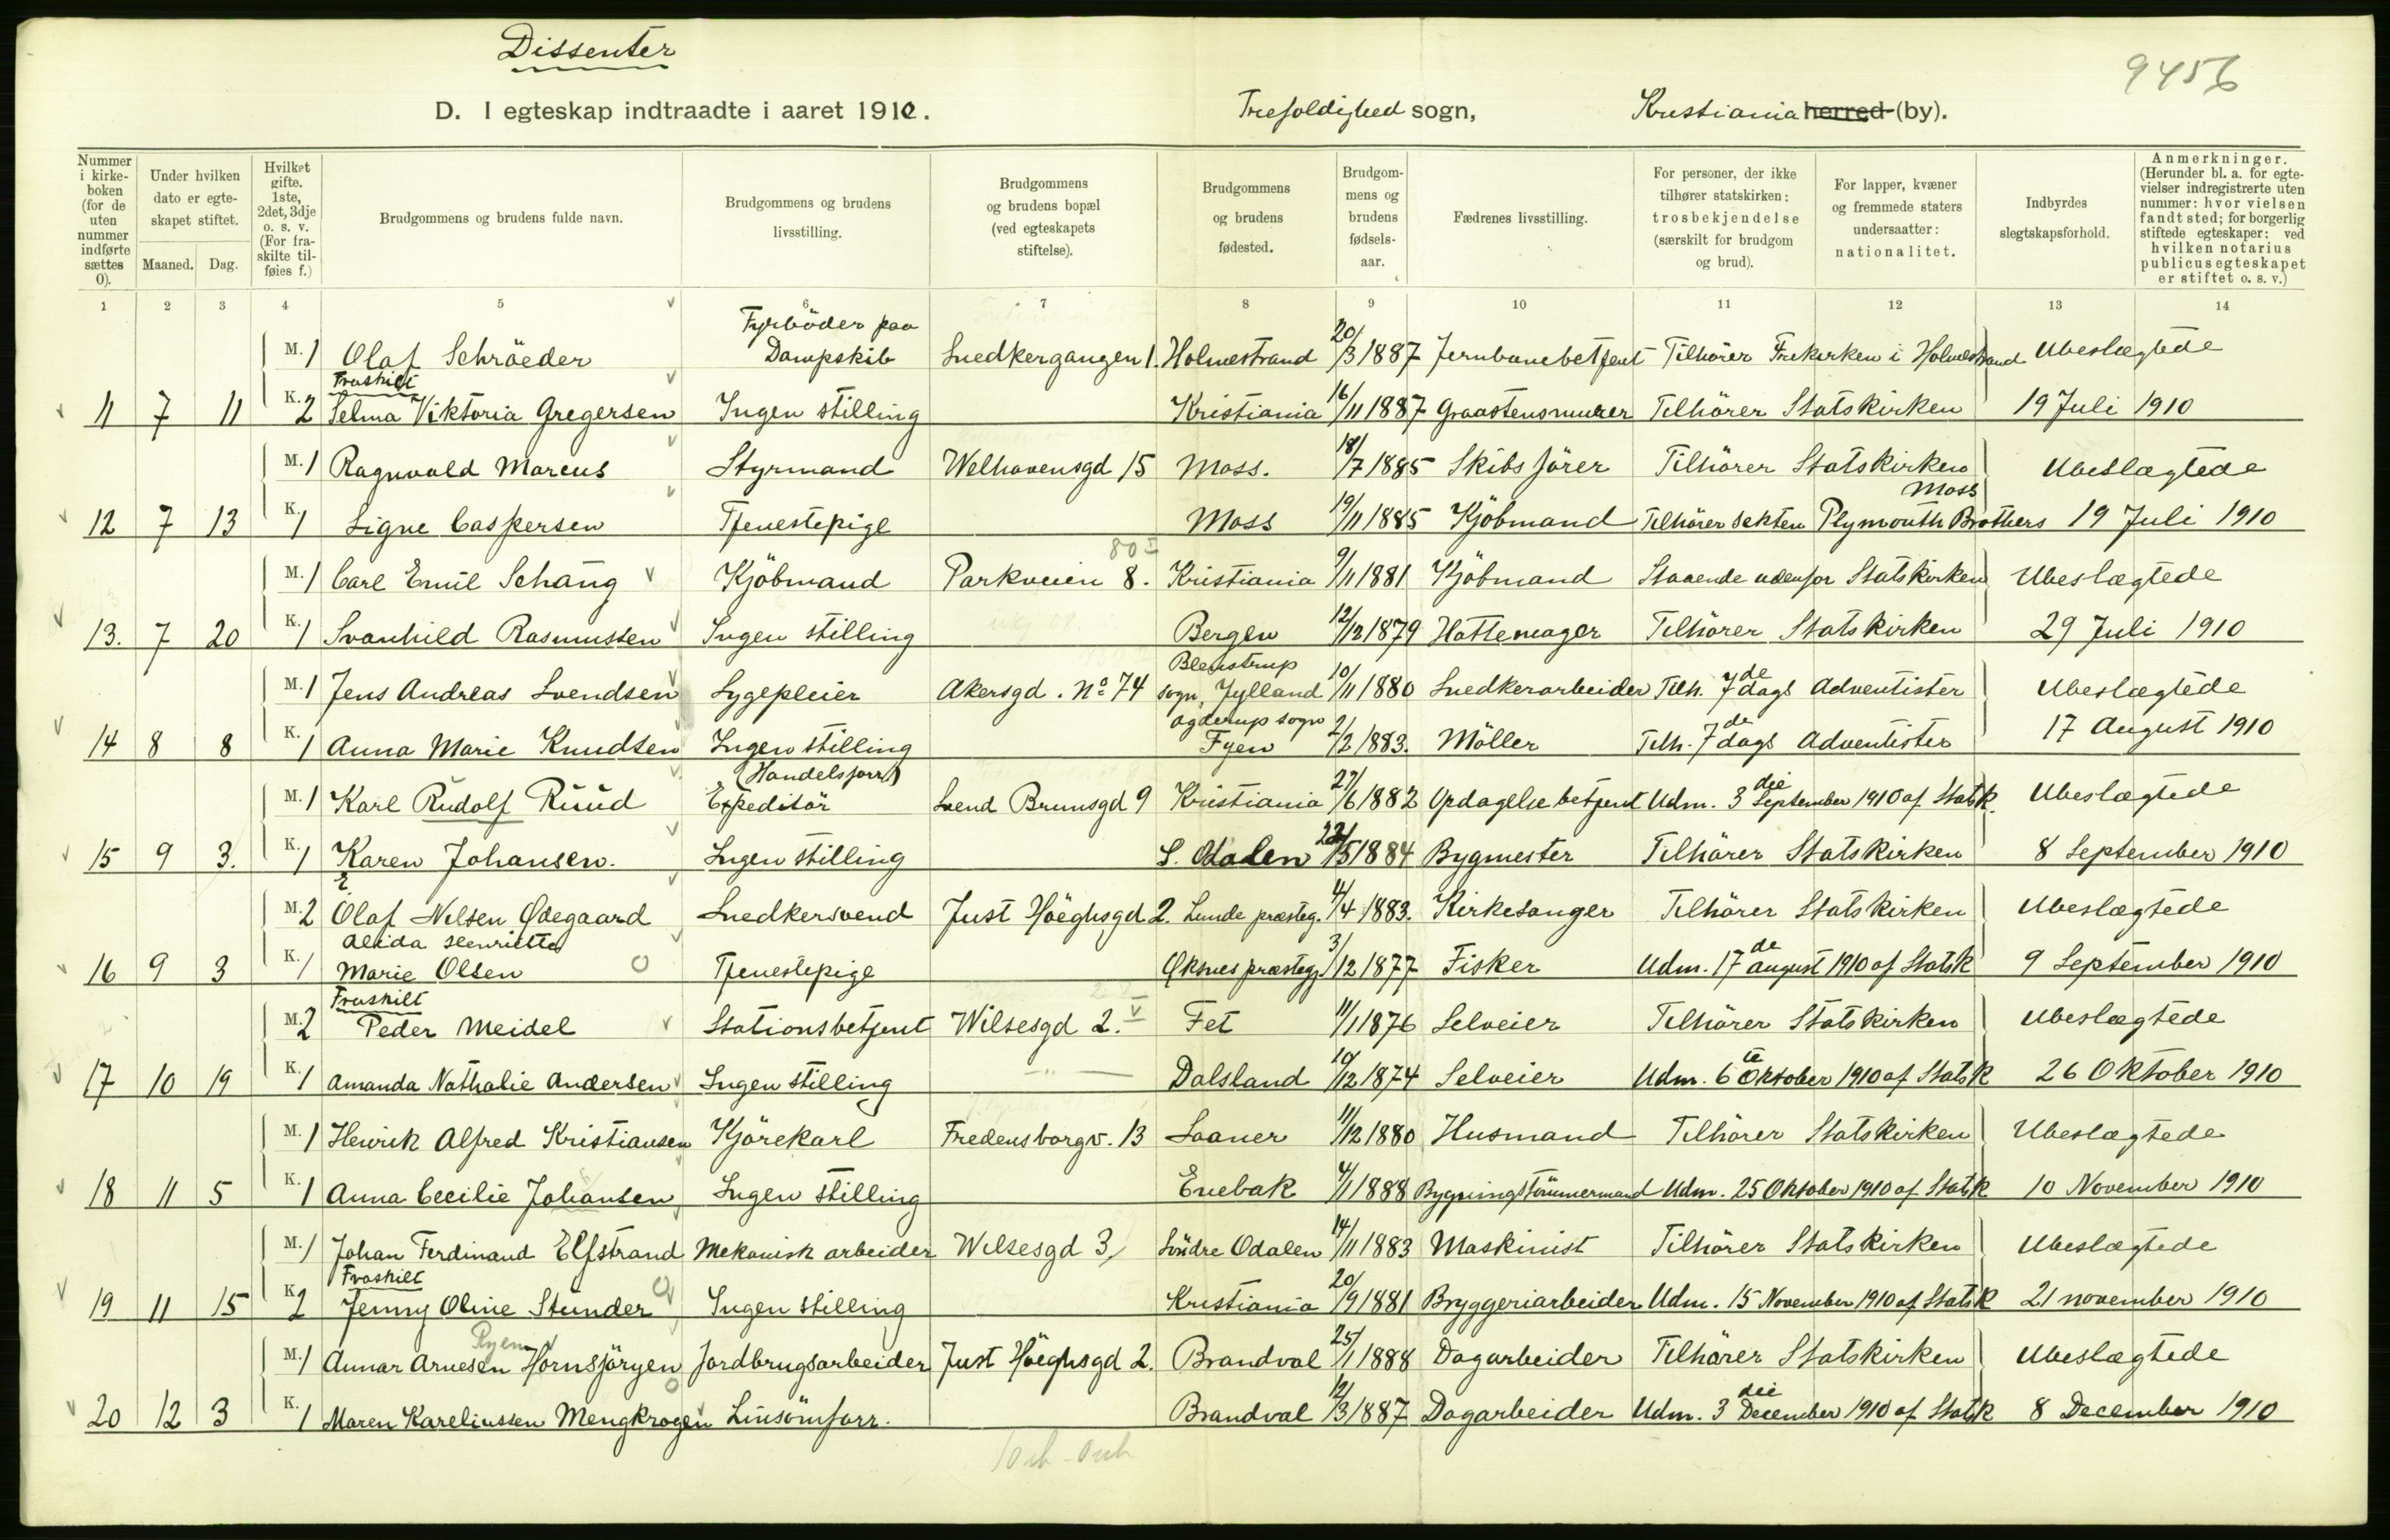 Dissenter
9456
D. I egteskap indtraadte i aaret 1910. Trefoldighed sogn, Kristiania herred (by).
Nummer i kirkeboken (for de uten nummer indførte sættes 0). Under hvilken dato er egteskapet stiftet. Maaned. Dag. Hvilket gifte. 1ste, 2det, 3dje o. s. v. (For fraskilte tilføies f.) Brudgommens og brudens fulde navn. Brudgommens og brudens livsstilling. Brudgommens og brudens bopæl (ved egteskapets stiftelse). Brudgommens og brudens fødested. Brudgommens og brudens fødselsaar. Fædrenes livsstilling. For personer, der ikke tilhører statskirken: trosbekjendelse (særskilt for brudgom og brud). For lapper, kvæner og fremmede staters undersaatter: nationalitet. Indbyrdes slegtskapsforhold. Anmerkninger. (Herunder bl. a. for egtevielser indregistrerte uten nummer: hvor vielsen fandt sted; for borgerlig stiftede egteskaper: ved hvilken notarius publicus egteskapet er stiftet o. s. v.)
1 2 3 4 5 6 7 8 9 10 11 12 13 14
M. 1 Olaf Schräeder Fyrböder paa Dampskib Snedkergangen 1. Holmestrand 20/3 1887 Jernbanebetjent Tilhörer Frikirken i Holmestrand Ubeslægtede
11 7 11 K. 2 Fraskilt Selma Viktoria Gregersen Ingen stilling Kristiania 16/11 1887 Graastensmurer Tilhörer Statskirken 19 Juli 1910
M. 1 Ragnvald Marcus Styrmand Welhavensgd 15 Moss. 18/7 1885 Skibsförer Tilhörer Statskirken Ubeslægtede
12 7 13 K. 1 Signe Caspersen Tjenestepige Moss 19/11 1885 Kjöbmand Tilhörer sekten Plymouth Brothers Moss 19 Juli 1910
M. 1 Carl Emil Schang Kjöbmand Parkveien 8. 80 I Kristiania 9/11 1881 Kjöbmand Staaende udenfor Statskirken Ubeslægtede
13. 7 20 K. 1 Svanhild Rasmussen Ingen stilling Bergen 12/12 1879 Hattemager Tilhörer Statskirken 29 Juli 1910
M. 1 Jens Andreas Svendsen Sygepleier Akersgd. No 74 Blenstrup sogn, Jylland 10/11 1880 Snedkerarbeider Tilh. 7de dags Adventister Ubeslægtede
14 8 8 K. 1 Anna Marie Knudsen Ingen stilling Agderup sogn Fyen 2/2 1883. Möller Tilh. 7de dags Adventister 17 August 1910
M. 1 Karl Rudolf Ruud Expeditör (Handelsforr) Svend Brunsgd 9 Kristiania 27/6 1882 Opdagelsebetjent Udm. 3die September 1910 af Statsk. Ubeslægtede
15 9 3. K. 1 Karen Johansen. Ingen stilling S. Odalen 22/5 1884 Bygmester Tilhörer Statskirken 8 September 1910
M. 2 E Olaf Nilsen Ødegaard Snedkersvend Just Höeghsgd 2. Lunde præsteg. 4/4 1883. Kirkesanger Tilhörer Statskirken Ubeslægtede
16 9 3 K. 1 Alida Henriette Marie Olsen Tjenestepige Øksnes præstegj. 3/12 1877 Fisker Udm. 17de August 1910 af Statsk 9 September 1910
M. 2 Fraskilt Peder Meidel Stationsbetjent Wilsesgd 2. V Fet 11/1 1876 Selveier Tilhörer Statskirken Ubeslægtede
17 10 19 K. 1 Amanda Nathalie Andersen Ingen stilling — " — Dalsland 10/12 1874 Selveier Udm. 6te Oktober 1910 af Statsk 26 Oktober 1910
M. 1 Henrik Alfred Kristiansen Kjörekarl Fredensborgv. 13 Saaner 11/12 1880 Husmand Tilhörer Statskirken Ubeslægtede
18 11 5 K. 1 Anna Cecilie Johansen Ingen stilling Enebak 4/1 1888 Bygningstömmermand Udm. 25 Oktober 1910 af Statsk 10 November 1910
M. 1 Johan Ferdinand Elfstrand Mekanisk arbeider Wilsesgd 3, Söndre Odalen 14/11 1883 Maskinist Tilhörer Statskirken Ubeslægtede
19 11 15 K. 2 Fraskilt Jenny Oline Stunder Ingen stilling Kristiania 20/9 1881 Bryggeriarbeider Udm. 15 November 1910 af Statsk 21 november 1910
M. 1 Annar Arnesen Hornsjöryen Ryen Jordbrugsarbeider Just Höeghsgd 2. Brandval 25/1 1888 Dagarbeider Tilhörer Statskirken Ubeslægtede
20 12 3 K. 1 Maren Kareliussen Mengkrogen Linsömforr. Brandval 12/3 1887 Dagarbeider Udm. 3die December 1910 af Statsk 8 December 1910